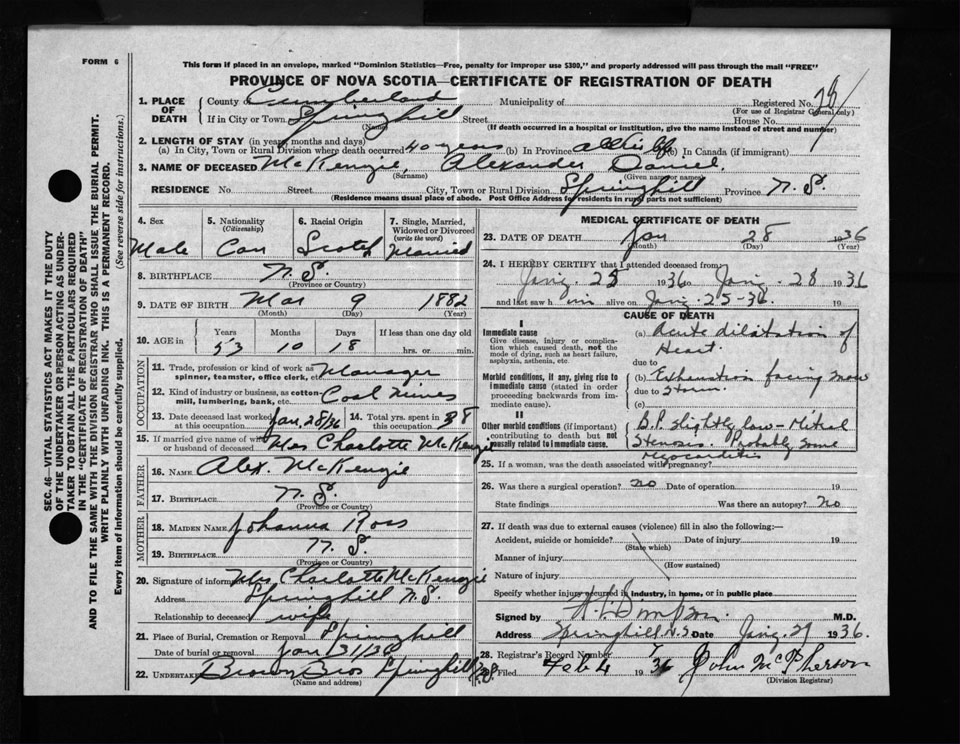 FORM 6
This form if placed in an envelope, marked "Dominion Statistics—Free, penalty for improper use $300," and properly addressed will pass through the mail "FREE"
PROVINCE OF NOVA SCOTIA—CERTIFICATE OF REGISTRATION OF DEATH
1. PLACE OF DEATH County of Cumberland Municipality of Registered No.
(For use of Registrar General only)
If in City or Town Springhill Street House No.
(Name) (If death occurred in a hospital or institution, give the name instead of street and number)
2. LENGTH OF STAY (in years, months and days)
(a) In City, Town or Rural Division where death occurred 40 years (b) In Province all life (c) In Canada (if immigrant)
3. NAME OF DECEASED McKenzie, Alexander Daniel
(Surname) (Given name or names)
RESIDENCE No. Street City, Town or Rural Division Springhill Province N.S.
(Residence means usual place of abode. Post Office Address for residents in rural parts not sufficient)
4. Sex Male
5. Nationality (Citizenship) Can
6. Racial Origin Scotch
7. Single, Married, Widowed or Divorced (write the word) Married
8. BIRTHPLACE N.S.
(Province or Country)
9. DATE OF BIRTH Mar 9 1882
(Month) (Day) (Year)
10. AGE in Years Months Days If less than one day old
53 10 18 hrs. or min.
OCCUPATION
11. Trade, profession or kind of work as spinner, teamster, office clerk, etc. Manager
12. Kind of industry or business, as cotton-mill, lumbering, bank, etc. Coal Mines
13. Date deceased last worked at this occupation Jan. 28/36 14. Total yrs. spent in this occupation 38
15. If married give name of wife or husband of deceased Mrs Charlotte McKenzie
FATHER
16. NAME Alex. McKenzie
17. BIRTHPLACE N.S.
(Province or Country)
MOTHER
18. MAIDEN NAME Johanna Ross
19. BIRTHPLACE N.S.
(Province or Country)
20. Signature of informant Mrs Charlotte McKenzie
Address Springhill N.S.
Relationship to deceased wife
21. Place of Burial, Cremation or Removal Springhill
Date of burial or removal Jan/31/36
22. UNDERTAKER Brown Bros Springhill N.S.
(Name and address)
MEDICAL CERTIFICATE OF DEATH
23. DATE OF DEATH Jan 28 1936
(Month) (Day) (Year)
24. I HEREBY CERTIFY that I attended deceased from
Jany. 25 1936 to Jany. 28 1936
and last saw him alive on Jany. 25-36 19
CAUSE OF DEATH
I
Immediate cause
Give disease, injury or complication which caused death, not the mode of dying, such as heart failure, asphyxia, asthenia, etc.
(a) Acute dilatation of Heart.
due to
Morbid conditions, if any, giving rise to immediate cause (stated in order proceeding backwards from immediate cause).
(b) Exhaustion facing snow
due to Storm
(c)
II
Other morbid conditions (if important) contributing to death but not causally related to immediate cause.
B.P. slightly low - Mitral
Stenosis. Probably some
Myocarditis
25. If a woman, was the death associated with pregnancy?
26. Was there a surgical operation? no Date of operation 19
State findings Was there an autopsy? No
27. If death was due to external causes (violence) fill in also the following:—
Accident, suicide or homicide? Date of injury 19
(State which)
Manner of injury
(How sustained)
Nature of injury
Specify whether injury occurred in industry, in home, or in public place
Signed by M.D.
Address Springhill N.S. Date Jany. 29 1936.
28. Registrar's Record Number
Filed Feb 4 1936 John McPherson
(Division Registrar)
SEC. 46—VITAL STATISTICS ACT MAKES IT THE DUTY
OF THE UNDERTAKER OR PERSON ACTING AS UNDER-
TAKER TO OBTAIN ALL THE PARTICULARS REQUIRED
IN THE "CERTIFICATE OF REGISTRATION OF DEATH"
AND TO FILE THE SAME WITH THE DIVISION REGISTRAR WHO SHALL ISSUE THE BURIAL PERMIT.
WRITE PLAINLY WITH UNFADING INK. THIS IS A PERMANENT RECORD.
Every item of Information should be carefully supplied. (See reverse side for instructions.)